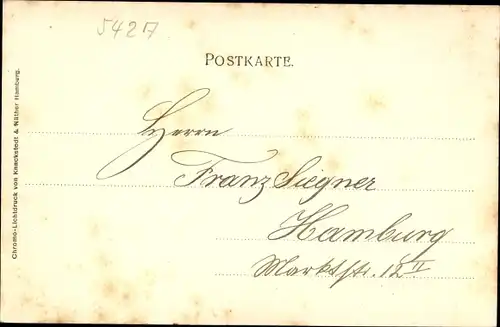 5427
POSTKARTE.
Herrn
Franz Siegner
Hamburg
Marktstr. 12 II
Chromo-Lichtdruck von Knackstedt & Näther Hamburg.